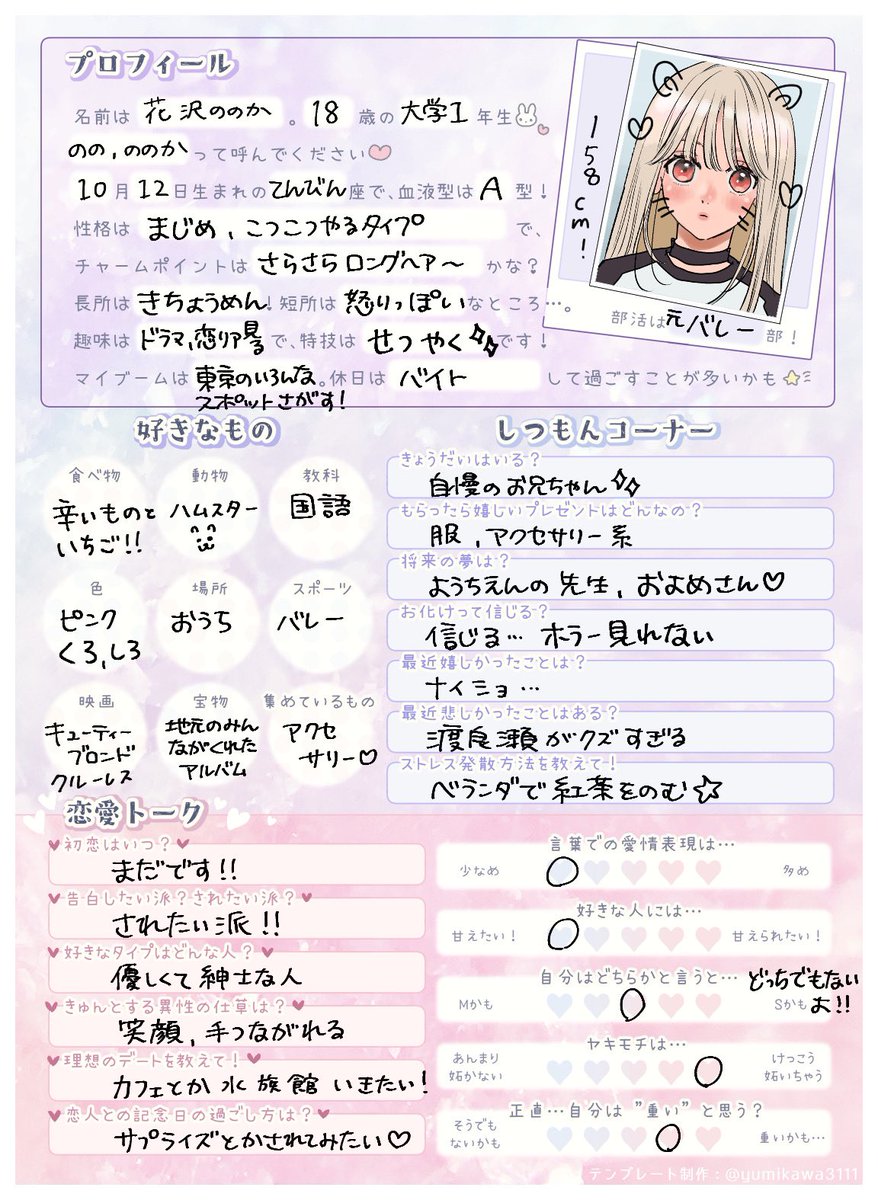 プロフィール
名前は 花沢ののか 。 18 歳の 大学1 年生
のの,ののか って呼んでください
10月12日生まれのてんびん座で、血液型は A 型!
性格は まじめ、こつこつやるタイプ で、
チャームポイントは さらさらロングヘア〜 かな?
長所は きちょうめん! 短所は 怒りっぽい なところ…。
趣味は ドラマ、恋リア見る で、特技は せつやく です!
マイブームは 東京のいろんなスポットさがす! 。休日は バイト して過ごすことが多いかも
158cm!
部活は元バレー部!
好きなもの
食べ物 動物 教科
辛いものと ハムスター 国語
いちご!!
色 場所 スポーツ
ピンク おうち バレー
くろ,しろ
映画 宝物 集めているもの
キューティー 地元のみん アクセ
ブロンド ながくれた サリー♡
クルーレス アルバム
しつもんコーナー
きょうだいはいる?
自慢のお兄ちゃん
もらったら嬉しいプレゼントはどんなの?
服,アクセサリー系
将来の夢は?
ようちえんの先生,およめさん♡
お化けって信じる?
信じる… ホラー見れない
最近嬉しかったことは?
ナイショ…
最近悲しかったことはある?
渡良瀬がクズすぎる
ストレス発散方法を教えて!
ベランダで紅茶をのむ☆
恋愛トーク
♥初恋はいつ?♥
まだです!!
♥告白したい派?されたい派?♥
されたい派!!
♥好きなタイプはどんな人?♥
優しくて紳士な人
♥きゅんとする異性の仕草は?♥
笑顔,手つながれる
♥理想のデートを教えて!♥
カフェとか水族館いきたい!
♥恋人との記念日の過ごし方は?♥
サプライズとかされてみたい♡
言葉での愛情表現は…
少なめ 多め
好きな人には…
甘えたい! 甘えられたい!
自分はどちらかと言うと… どっちでもない
Mかも Sかも よ!!
ヤキモチは…
あんまり けっこう
妬かない 妬いちゃう
正直…自分は"重い"と思う?
そうでも 重いかも…
ないかも
テンプレート制作:@yumikawa3111